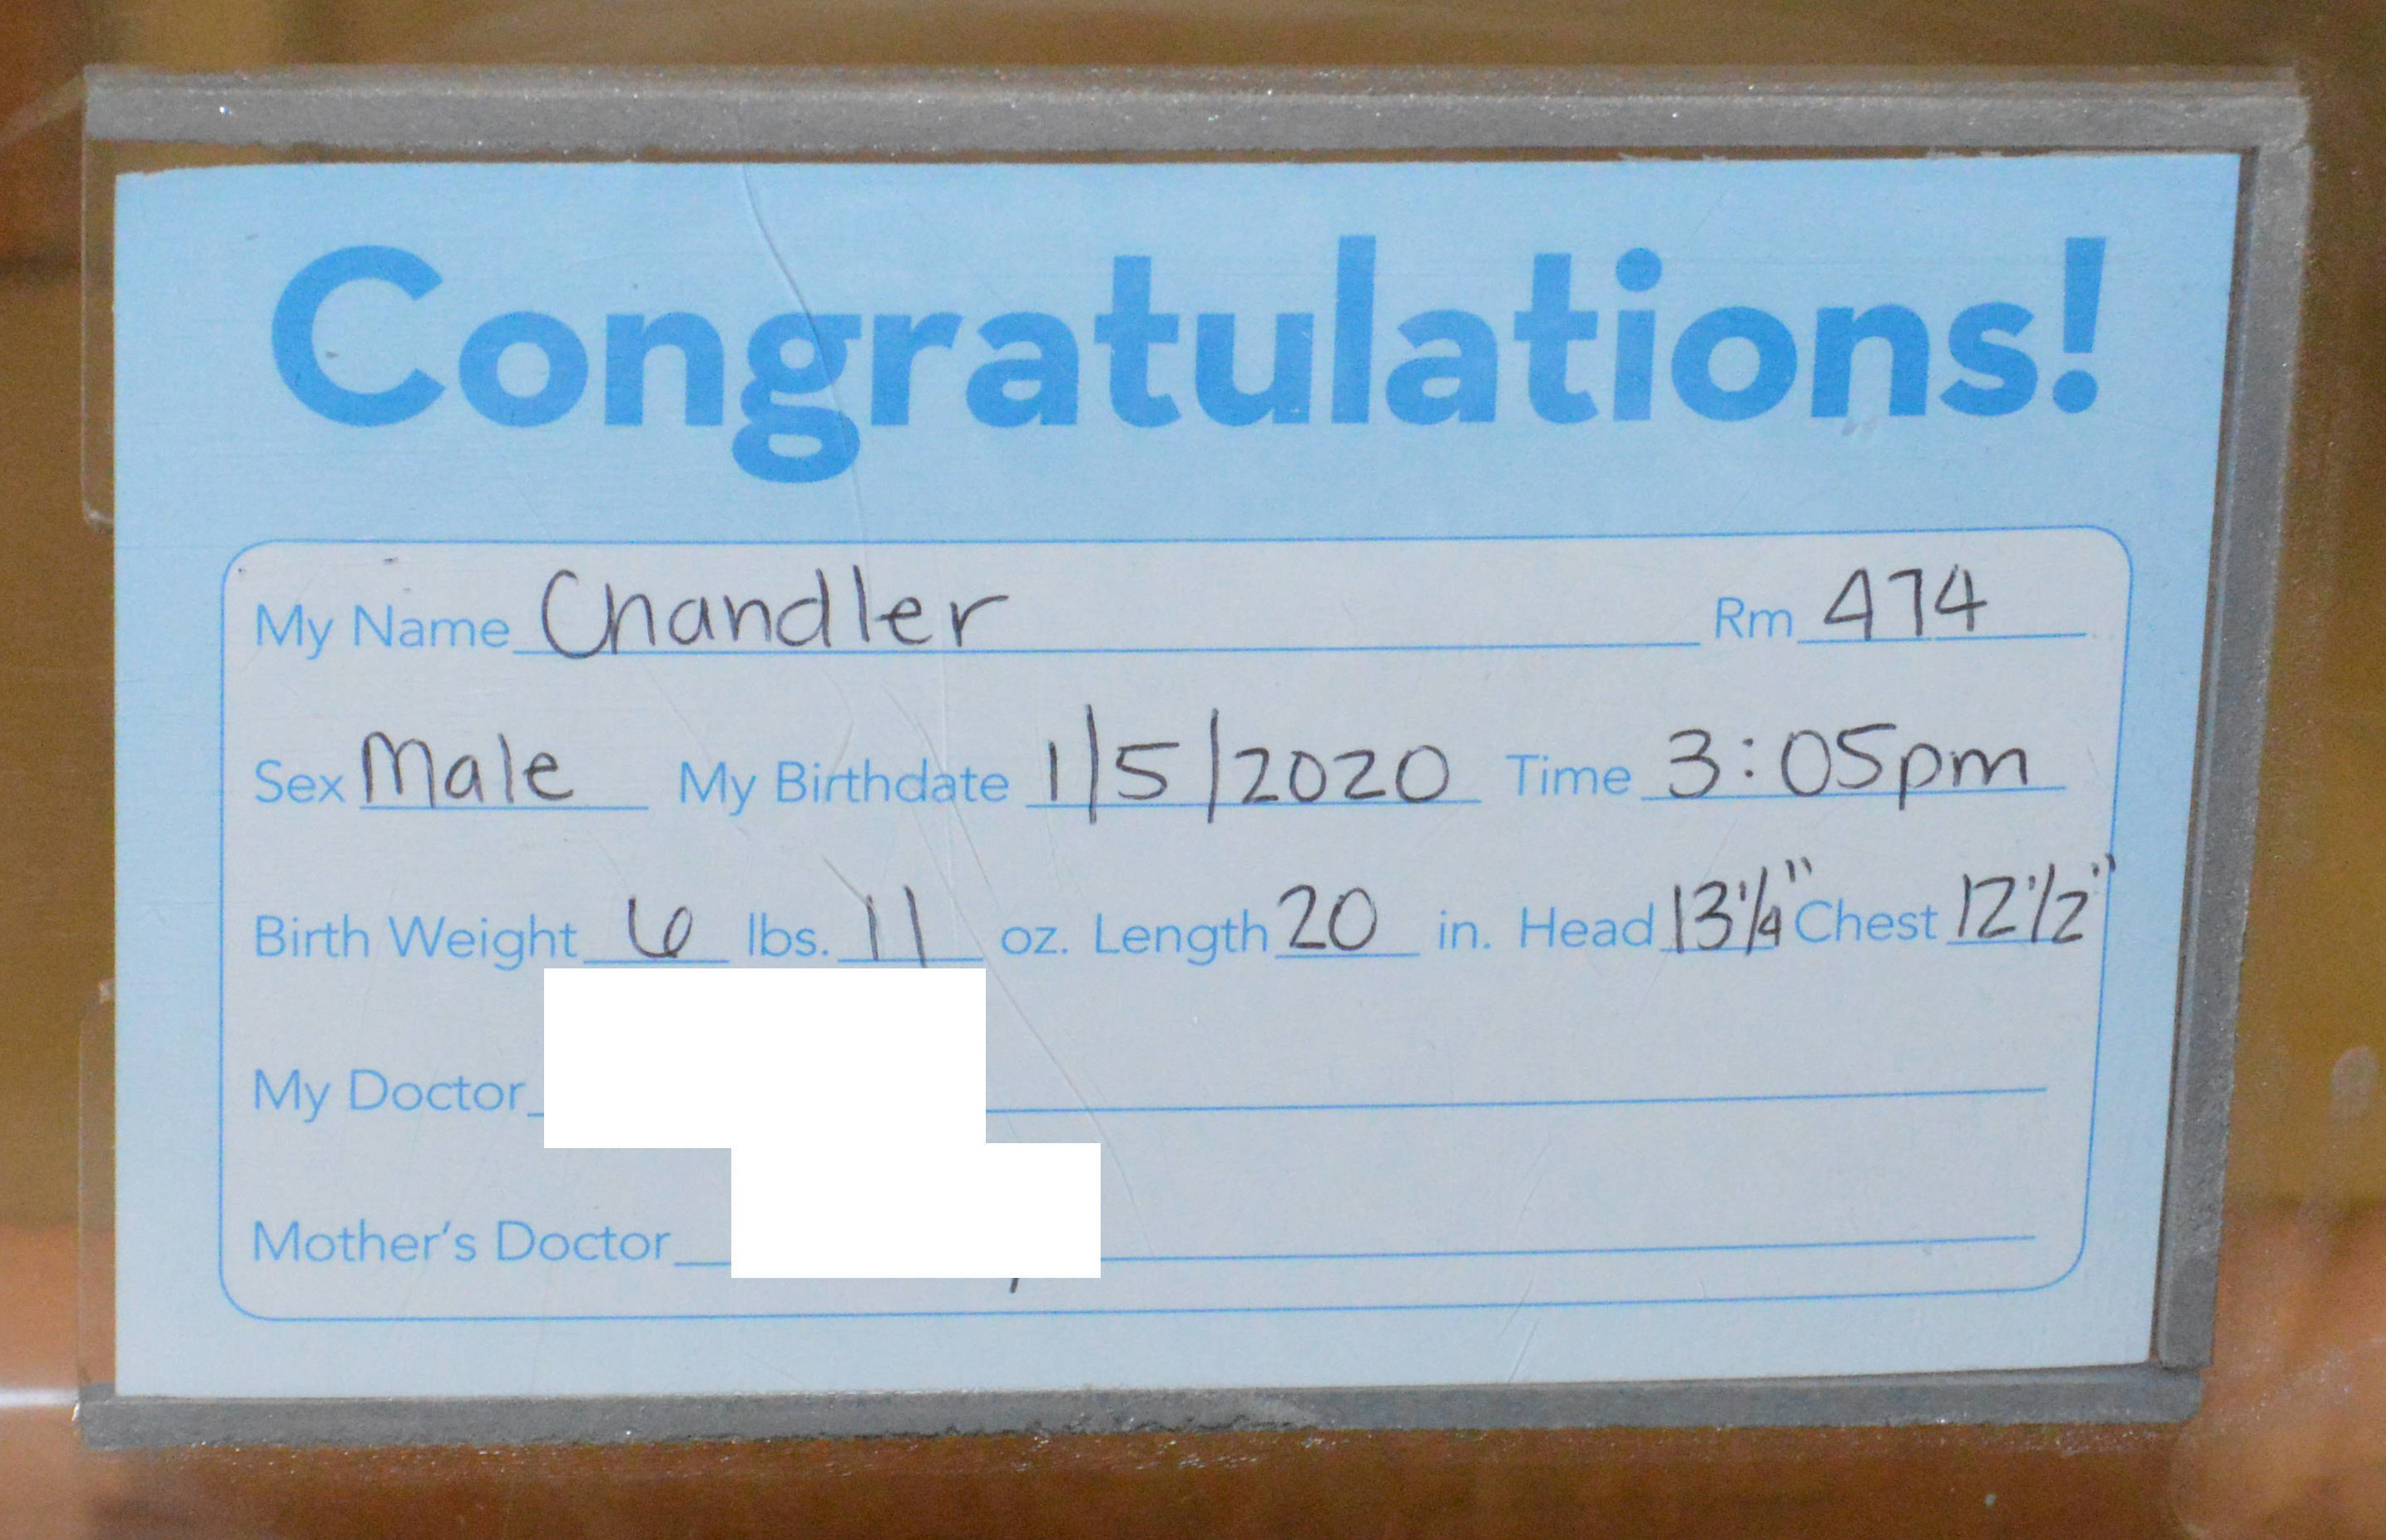 Congratulations!
My Name Chandler Rm 474
Sex Male My Birthdate 1/5/2020 Time 3:05pm
Birth Weight 6 lbs. 11 oz. Length 20 in. Head 13 1/4" Chest 12 1/2"
My Doctor
Mother's Doctor